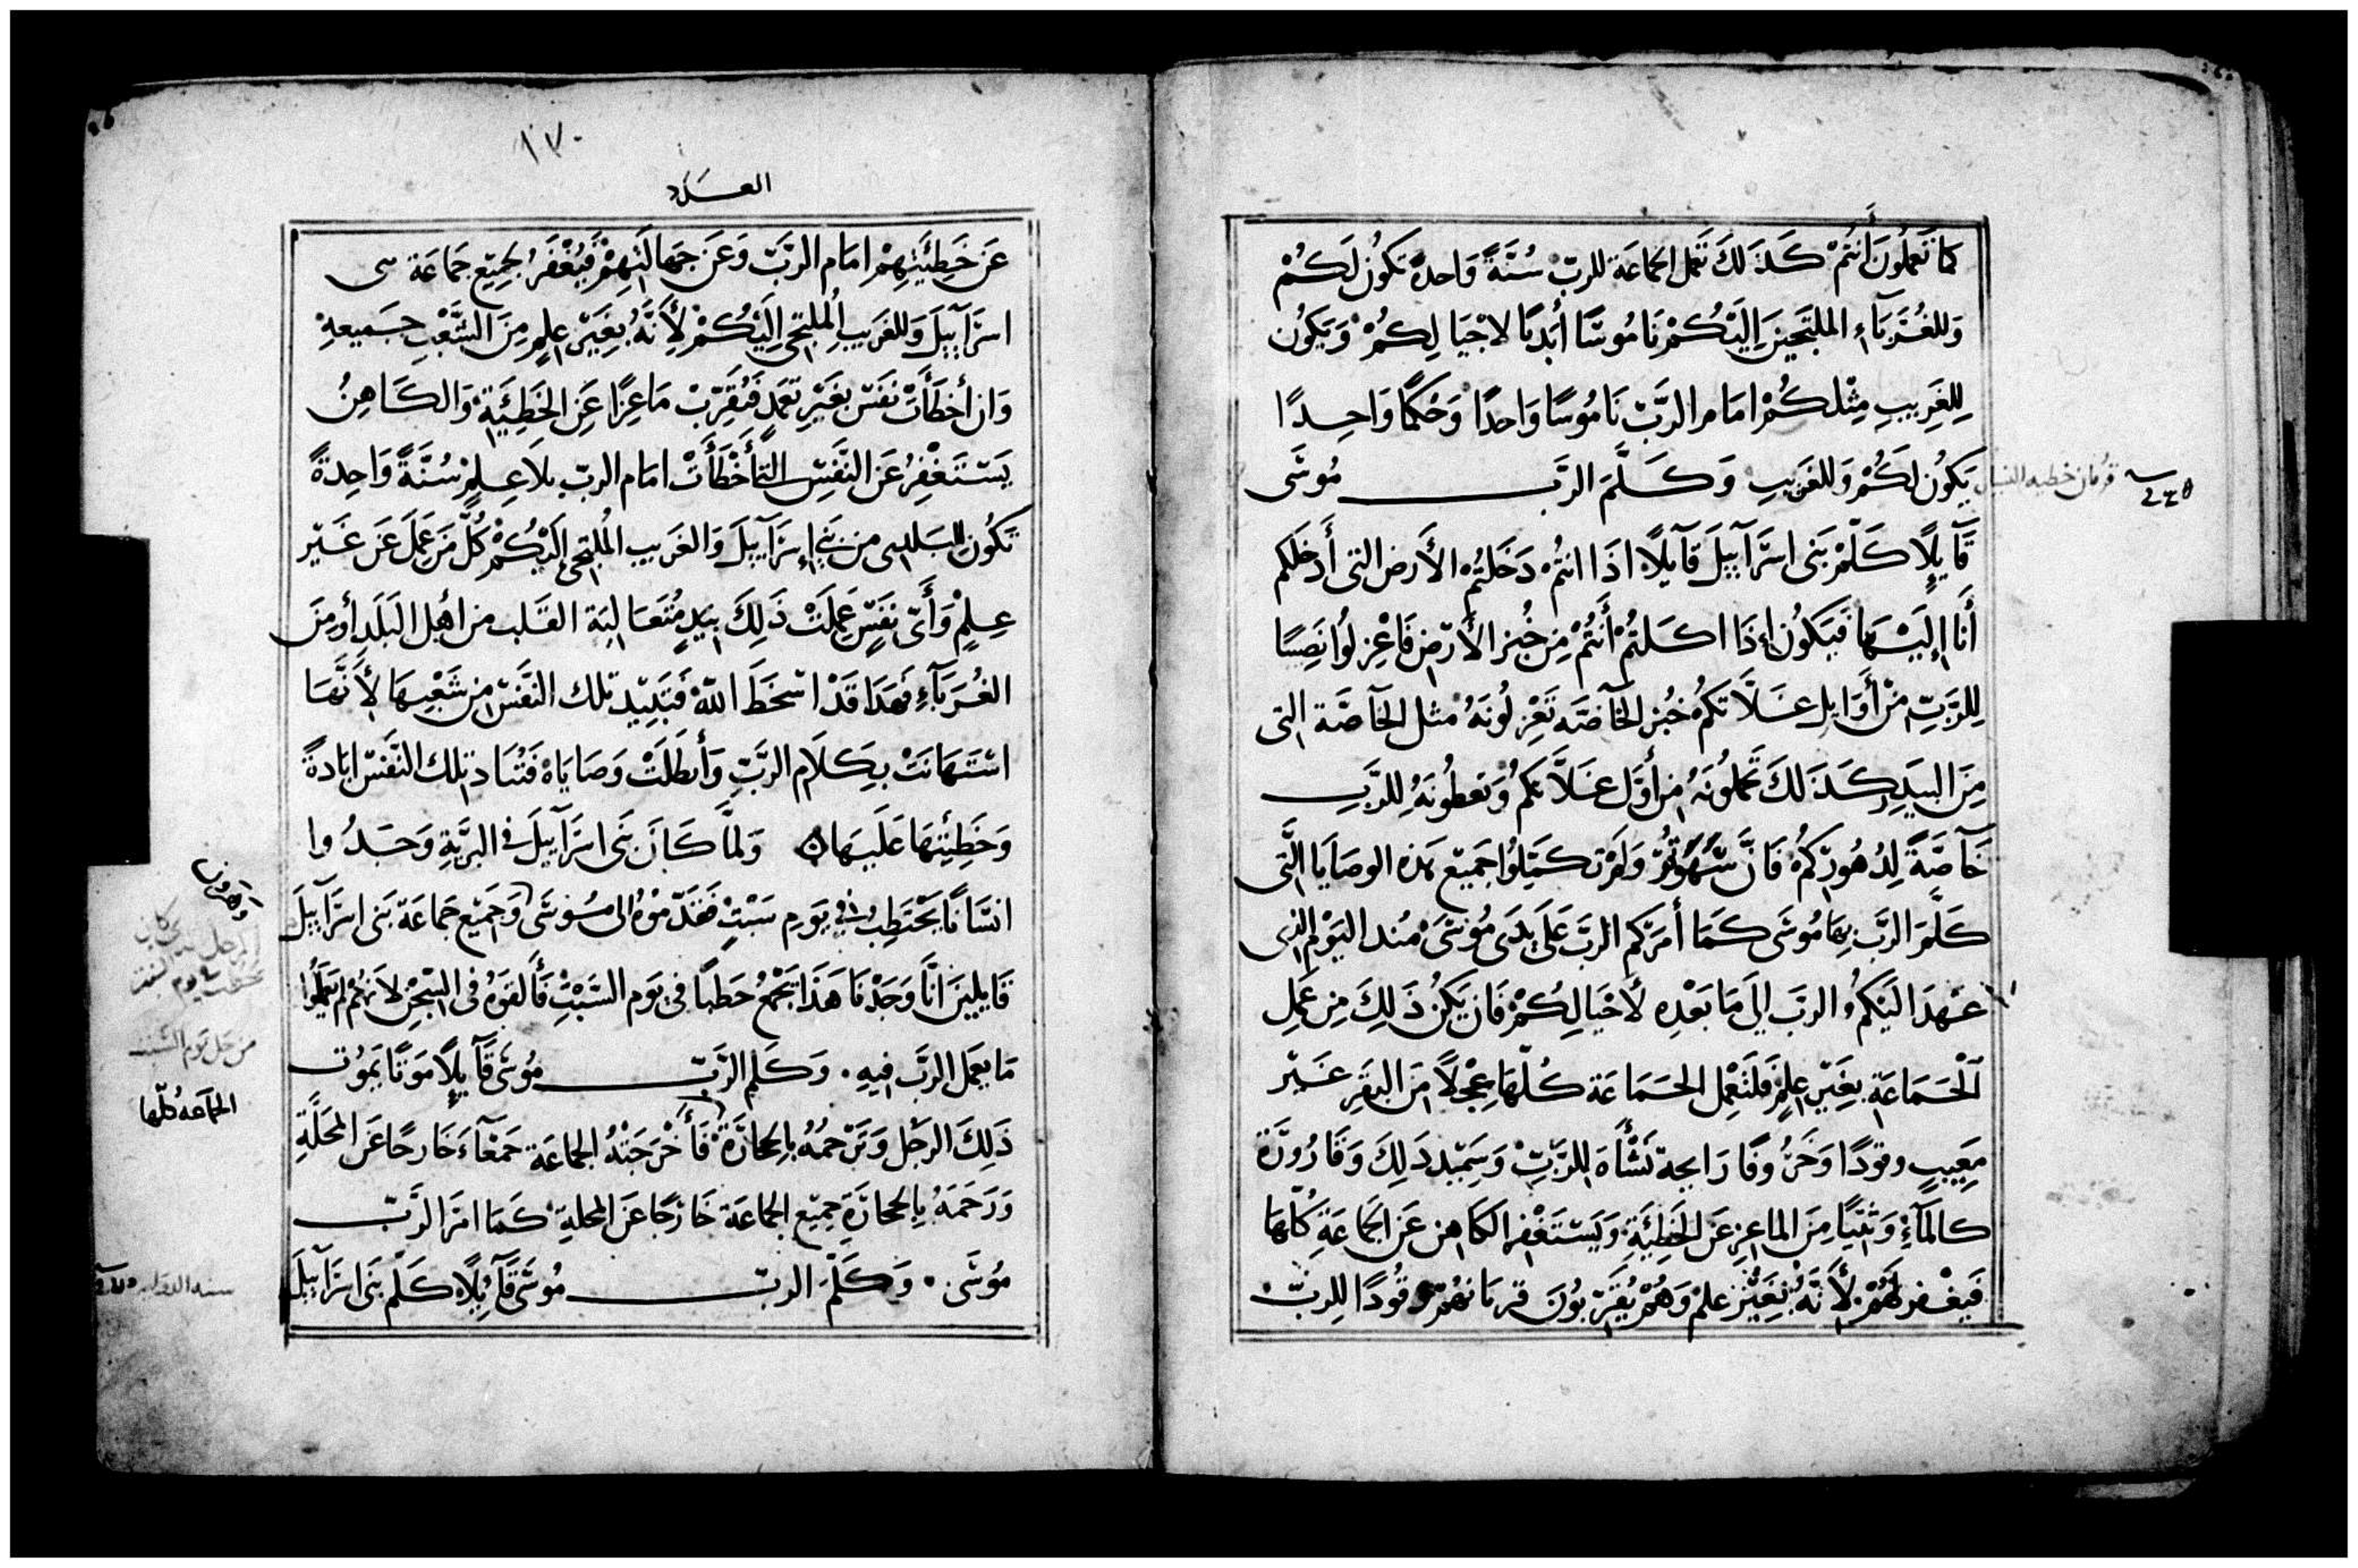 كما تعملون أنتم كذلك تعمل الجماعة للرب سنة واحدة تكون لكم
وللغرباء الملتجين إليكم ناموسا أبديا لاجيالكم ويكون
للغريب مثلكم امام الرب ناموسا واحدا وحكما واحدا
يكون لكم وللغريب وكلم الرب موسى
قآيلا كلم بنى اسرآييل قآيلا اذا انتم دخلتم الأرض التى أدخلكم
أنا إليها فيكون إذا اكلتم أنتم من خبز الأرض فاعزلوا نصيبا
للرب من أوايل غلاتكم خبز الخاصه تعزلونه مثل الخاصة التى
من البيدر كذلك تعملونه من أول غلاتكم وتعطونه للرب
خآصة لدهوركم فان سهوتم ولم تكملوا جميع هذه الوصايا التى
كلم الرب بها موسى كما أمركم الرب على يدى موسى منذ اليوم الذى
عهد اليكم الرب إلى مابعده لأجيالكم فان يكن ذلك من عمل
الجماعة بغير علم فلتعمل الجماعة كلها عجلا من البقر غير
معيب وقودا وخروفا رايحة نشأة للرب وسميد ذلك وقارورة
كالمآء وثنيا من الماعز عن الخطئية ويستغفر الكاهن عن الجماعة كلها
فيغفر لهم لأنه بغير علم وهم يقربون قربانهم وقودا للرب
١٧٠
العدد
عن خطئيتهم امام الرب وعن جهالتهم فيغفر لجميع جماعة بنى
اسرآييل وللغريب الملتجى إليكم لأنه بغير علم من الشعب جميعه
وان أخطأت نفس بغير تعمد فتقرب ماعزا عن الخطئية والكاهن
يستغفر عن النفس التى أخطأت امام الرب بلا علم سنة واحدة
تكون للبلدى من بنى إسرآييل والغريب الملتجى إليكم كل من عمل عن غير
علم وأى نفس عملت ذلك بيد متعالية القلب من اهل البلد أو من
الغربآء فهذا قد اسخط الله فتبيد تلك النفس من شعبها لأنها
استهانت بكلام الرب وأبطلت وصاياه فتباد تلك النفس ابادة
وخطئيتها عليها ولما كان بنى اسرآييل فى البرية وجدوا
انسانا يحتطب فى يوم سبت فقدموه الى موسى وجميع جماعة بنى اسرآييل
قايلين انا وجدنا هذا يجمع حطبا في يوم السبت فألقوه فى السجن لانهم لم يعلموا
ما يعمل الرب فيه وكلم الرب موسى قآيلا موتا يموت
ذلك الرجل وترجمه بالحجارة فأخرجته الجماعة جمعآء خارجا عن المحلة
ورجمه بالحجارة جميع الجماعة خارجا عن المحلة كما امر الرب
موسى وكلم الرب موسى قآيلا كلم بنى اسرآييل
وهرون
الجماعه كلها